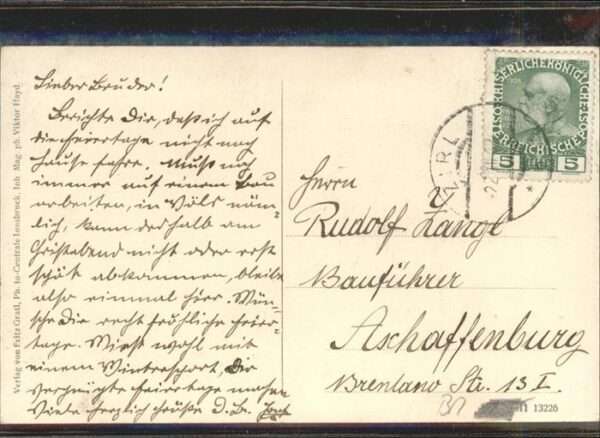 Lieber Bruder!
Berichte Dir, dass ich auf
die Feiertage nicht nach
Hause fahre. Muss noch
immer auf einem Bau
arbeiten, in Völs näm-
lich, kann deshalb am
Christabend nicht oder erst
spät abkommen, bleibe
also einmal hier. Wün-
sche Dir recht fröhliche Feier-
tage. Wirst wohl mit
einem Wintersport, Dir
vergnügte Feiertage machen
Viele herzlich Grüße D. Br.
Verlag von Fritz Gratl, Photo-Centrale Innsbruck, Inh. Mag. ph. Viktor Hayd.
KAISERLICHE KÖNIGLICHE
ÖSTERREICHISCHE POST
5 5
ZIRL
Herrn
Rudolf Zangl
Bauführer
Aschaffenburg
Brentano Str. 13 I.
11 13226